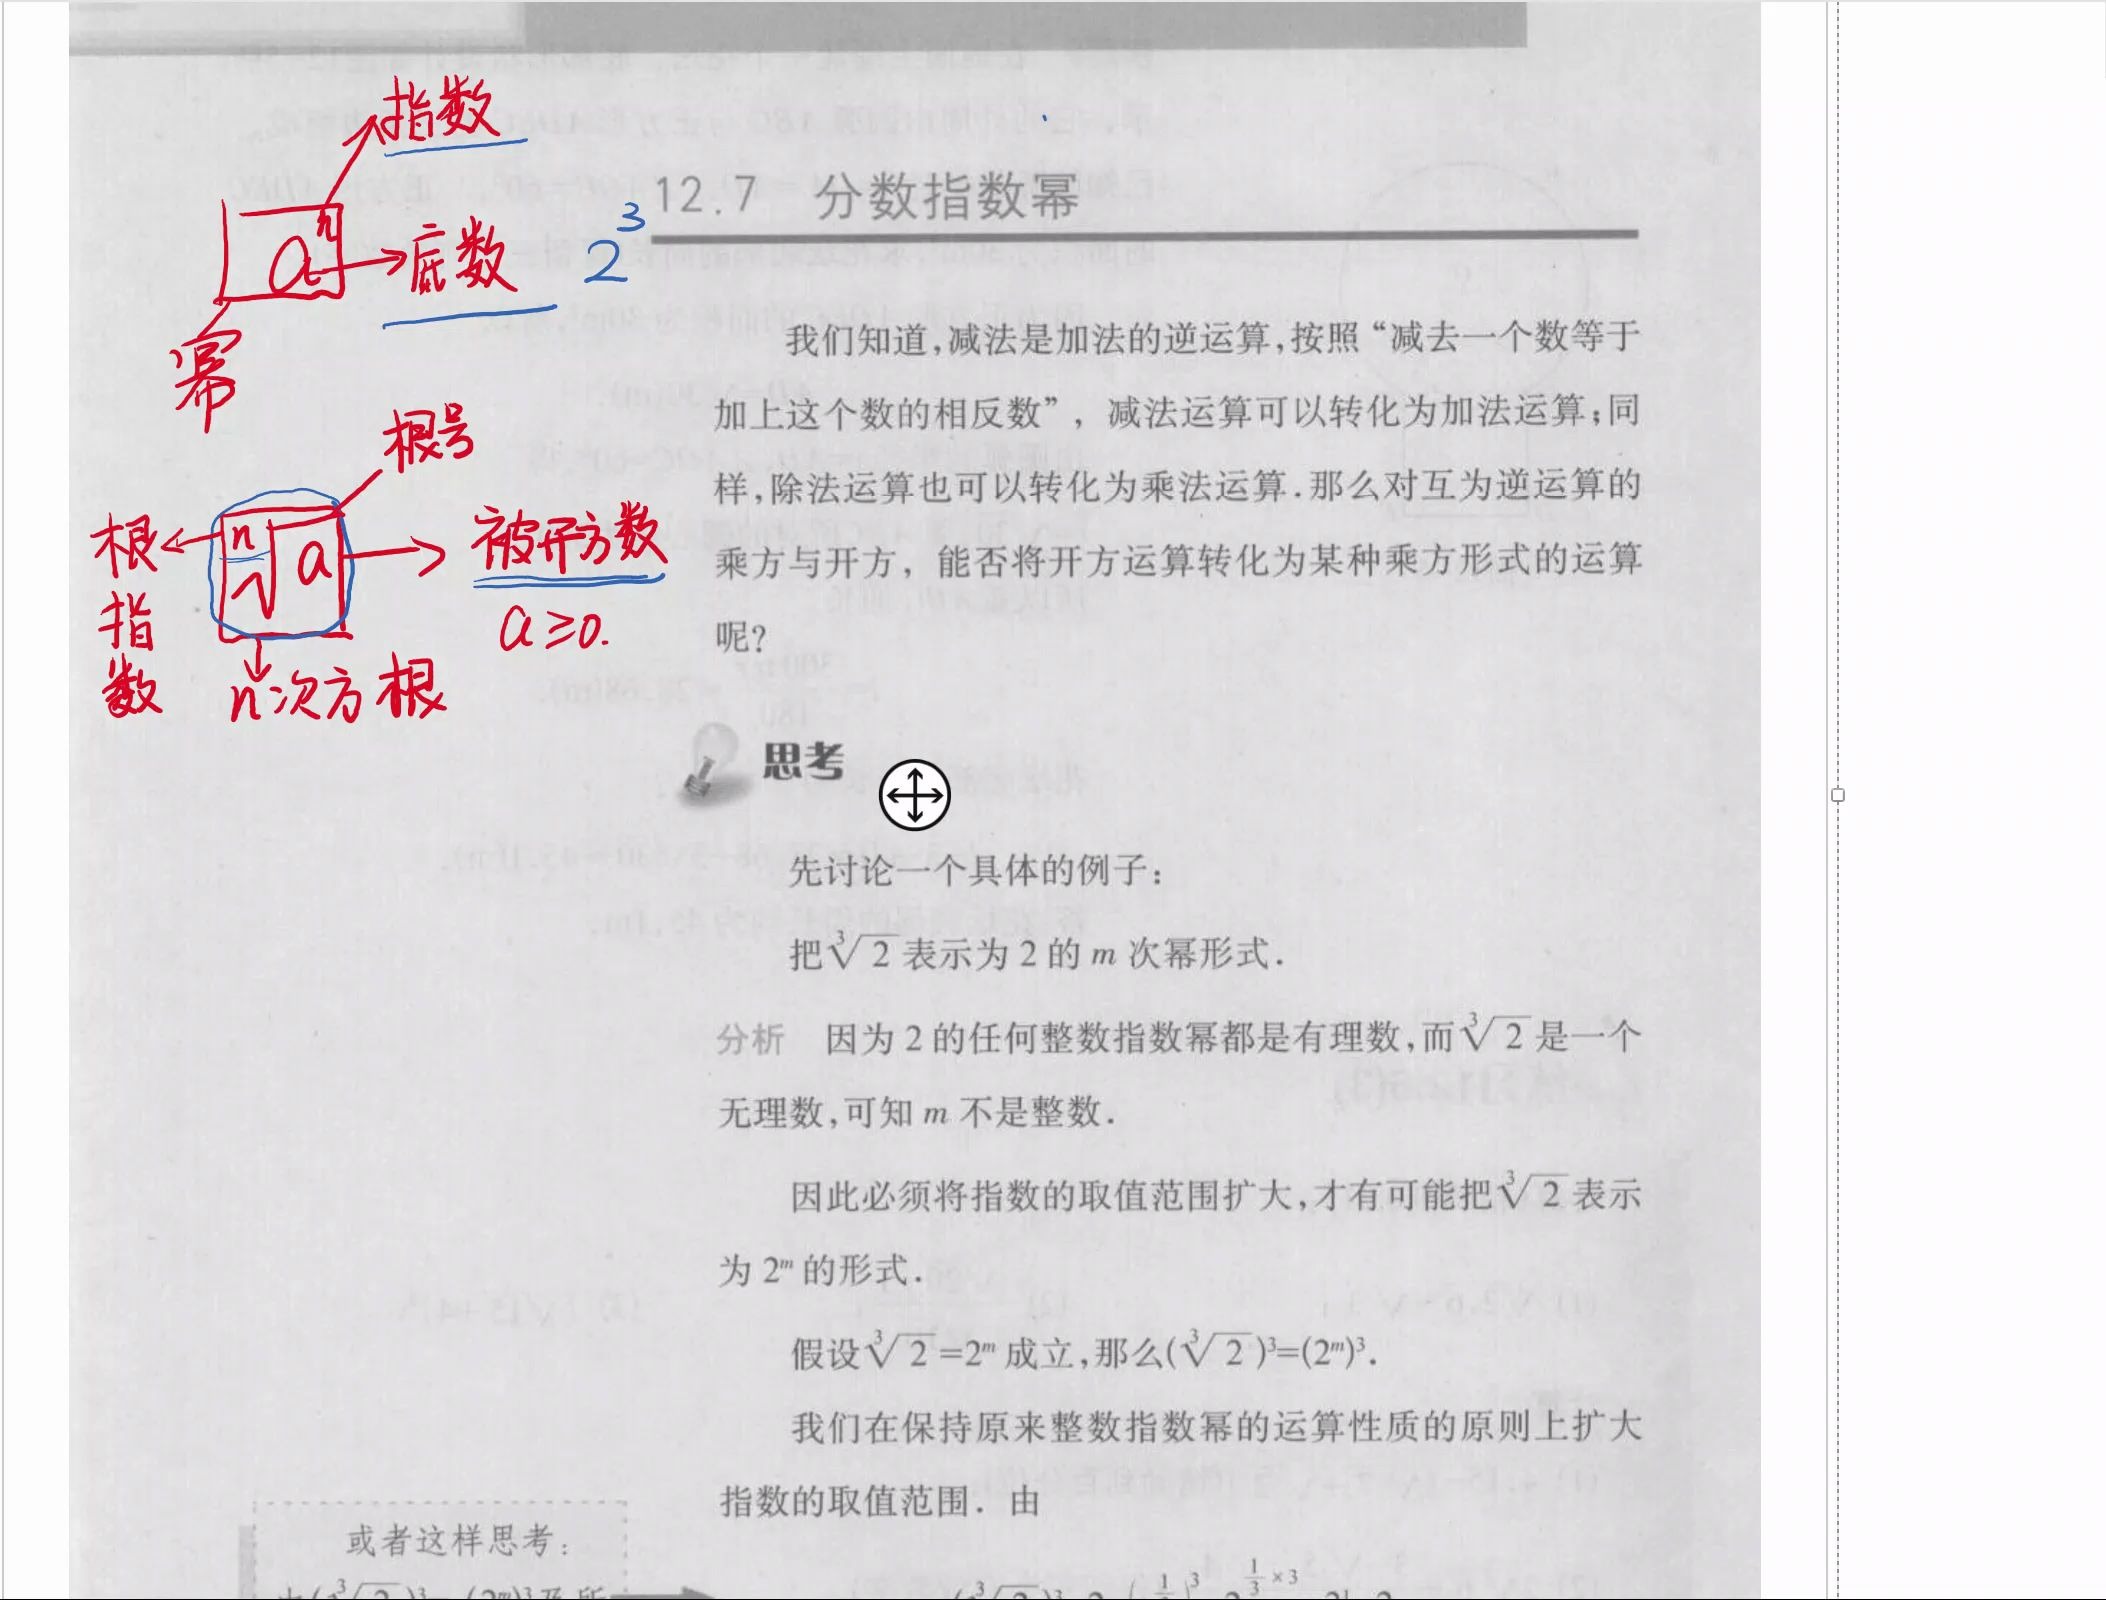 指数
12.7 分数指数幂
aⁿ
底数
2³
幂
我们知道,减法是加法的逆运算,按照“减去一个数等于
加上这个数的相反数”，减法运算可以转化为加法运算;同
样,除法运算也可以转化为乘法运算.那么对互为逆运算的
乘方与开方，能否将开方运算转化为某种乘方形式的运算
呢?
根号
根指数
ⁿ√a
被开方数
a≥0.
n次方根
思考
先讨论一个具体的例子:
把³√2表示为2的m次幂形式.
分析 因为2的任何整数指数幂都是有理数,而³√2是一个
无理数,可知m不是整数.
因此必须将指数的取值范围扩大,才有可能把³√2表示
为2ᵐ的形式.
假设³√2=2ᵐ成立,那么(³√2)³=(2ᵐ)³.
我们在保持原来整数指数幂的运算性质的原则上扩大
指数的取值范围. 由
或者这样思考: